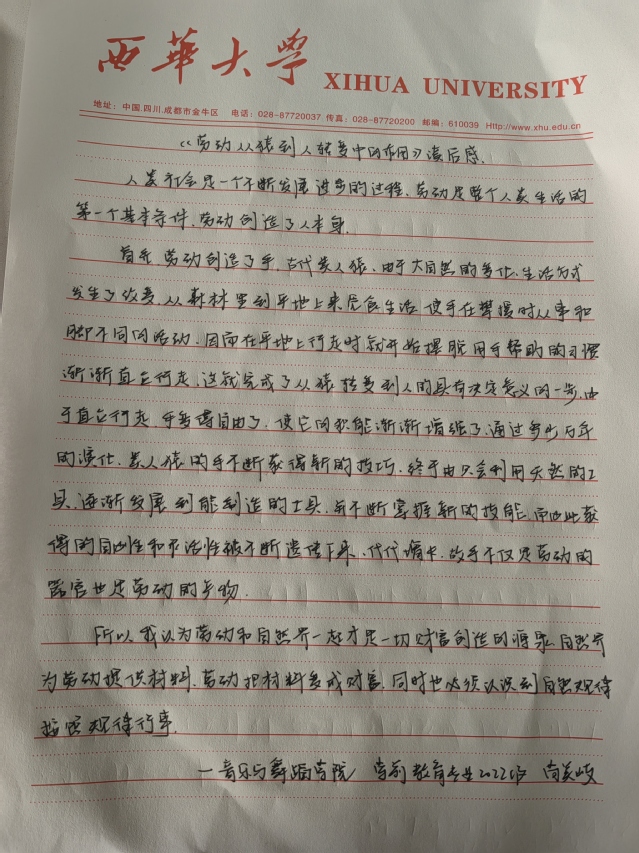 西華大学 XIHUA UNIVERSITY
地址：中国.四川.成都市金牛区 电话：028-87720037 传真：028-87720200 邮编：610039 Http://www.xhu.edu.cn
《劳动从猿到人转变中的作用》读后感.
人类社会是一个不断发展进步的过程，劳动是整个人类生活的
第一个基本条件，劳动创造了人本身.
首先，劳动创造了手，古代类人猿，由于大自然的变化，生活方式
发生了改变，从森林里到平地上来觅食生活，使手在攀援时从事和
脚不同的活动，因而在平地上行走时就开始摆脱用手帮助的习惯
渐渐直立行走，这就完成了从猿转变到人的具有决定意义的一步，由
于直立行走，手变得自由了，使它的职能渐渐增强了，通过多少万年
的演化，类人猿的手不断获得新的技巧，终于由只会利用天然的工
具，逐渐发展到能制造的工具，并不断掌握新的技能，而由此获
得的自由性和灵活性被不断遗传下来，代代增长，故手不仅是劳动的
器官也是劳动的产物.
所以，我认为劳动和自然界一起才是一切财富创造的源泉，自然界
为劳动提供材料，劳动把材料变成财富，同时也必须认识到自然规律
按照规律行事.
—音乐与舞蹈学院 学前教育专业2022级